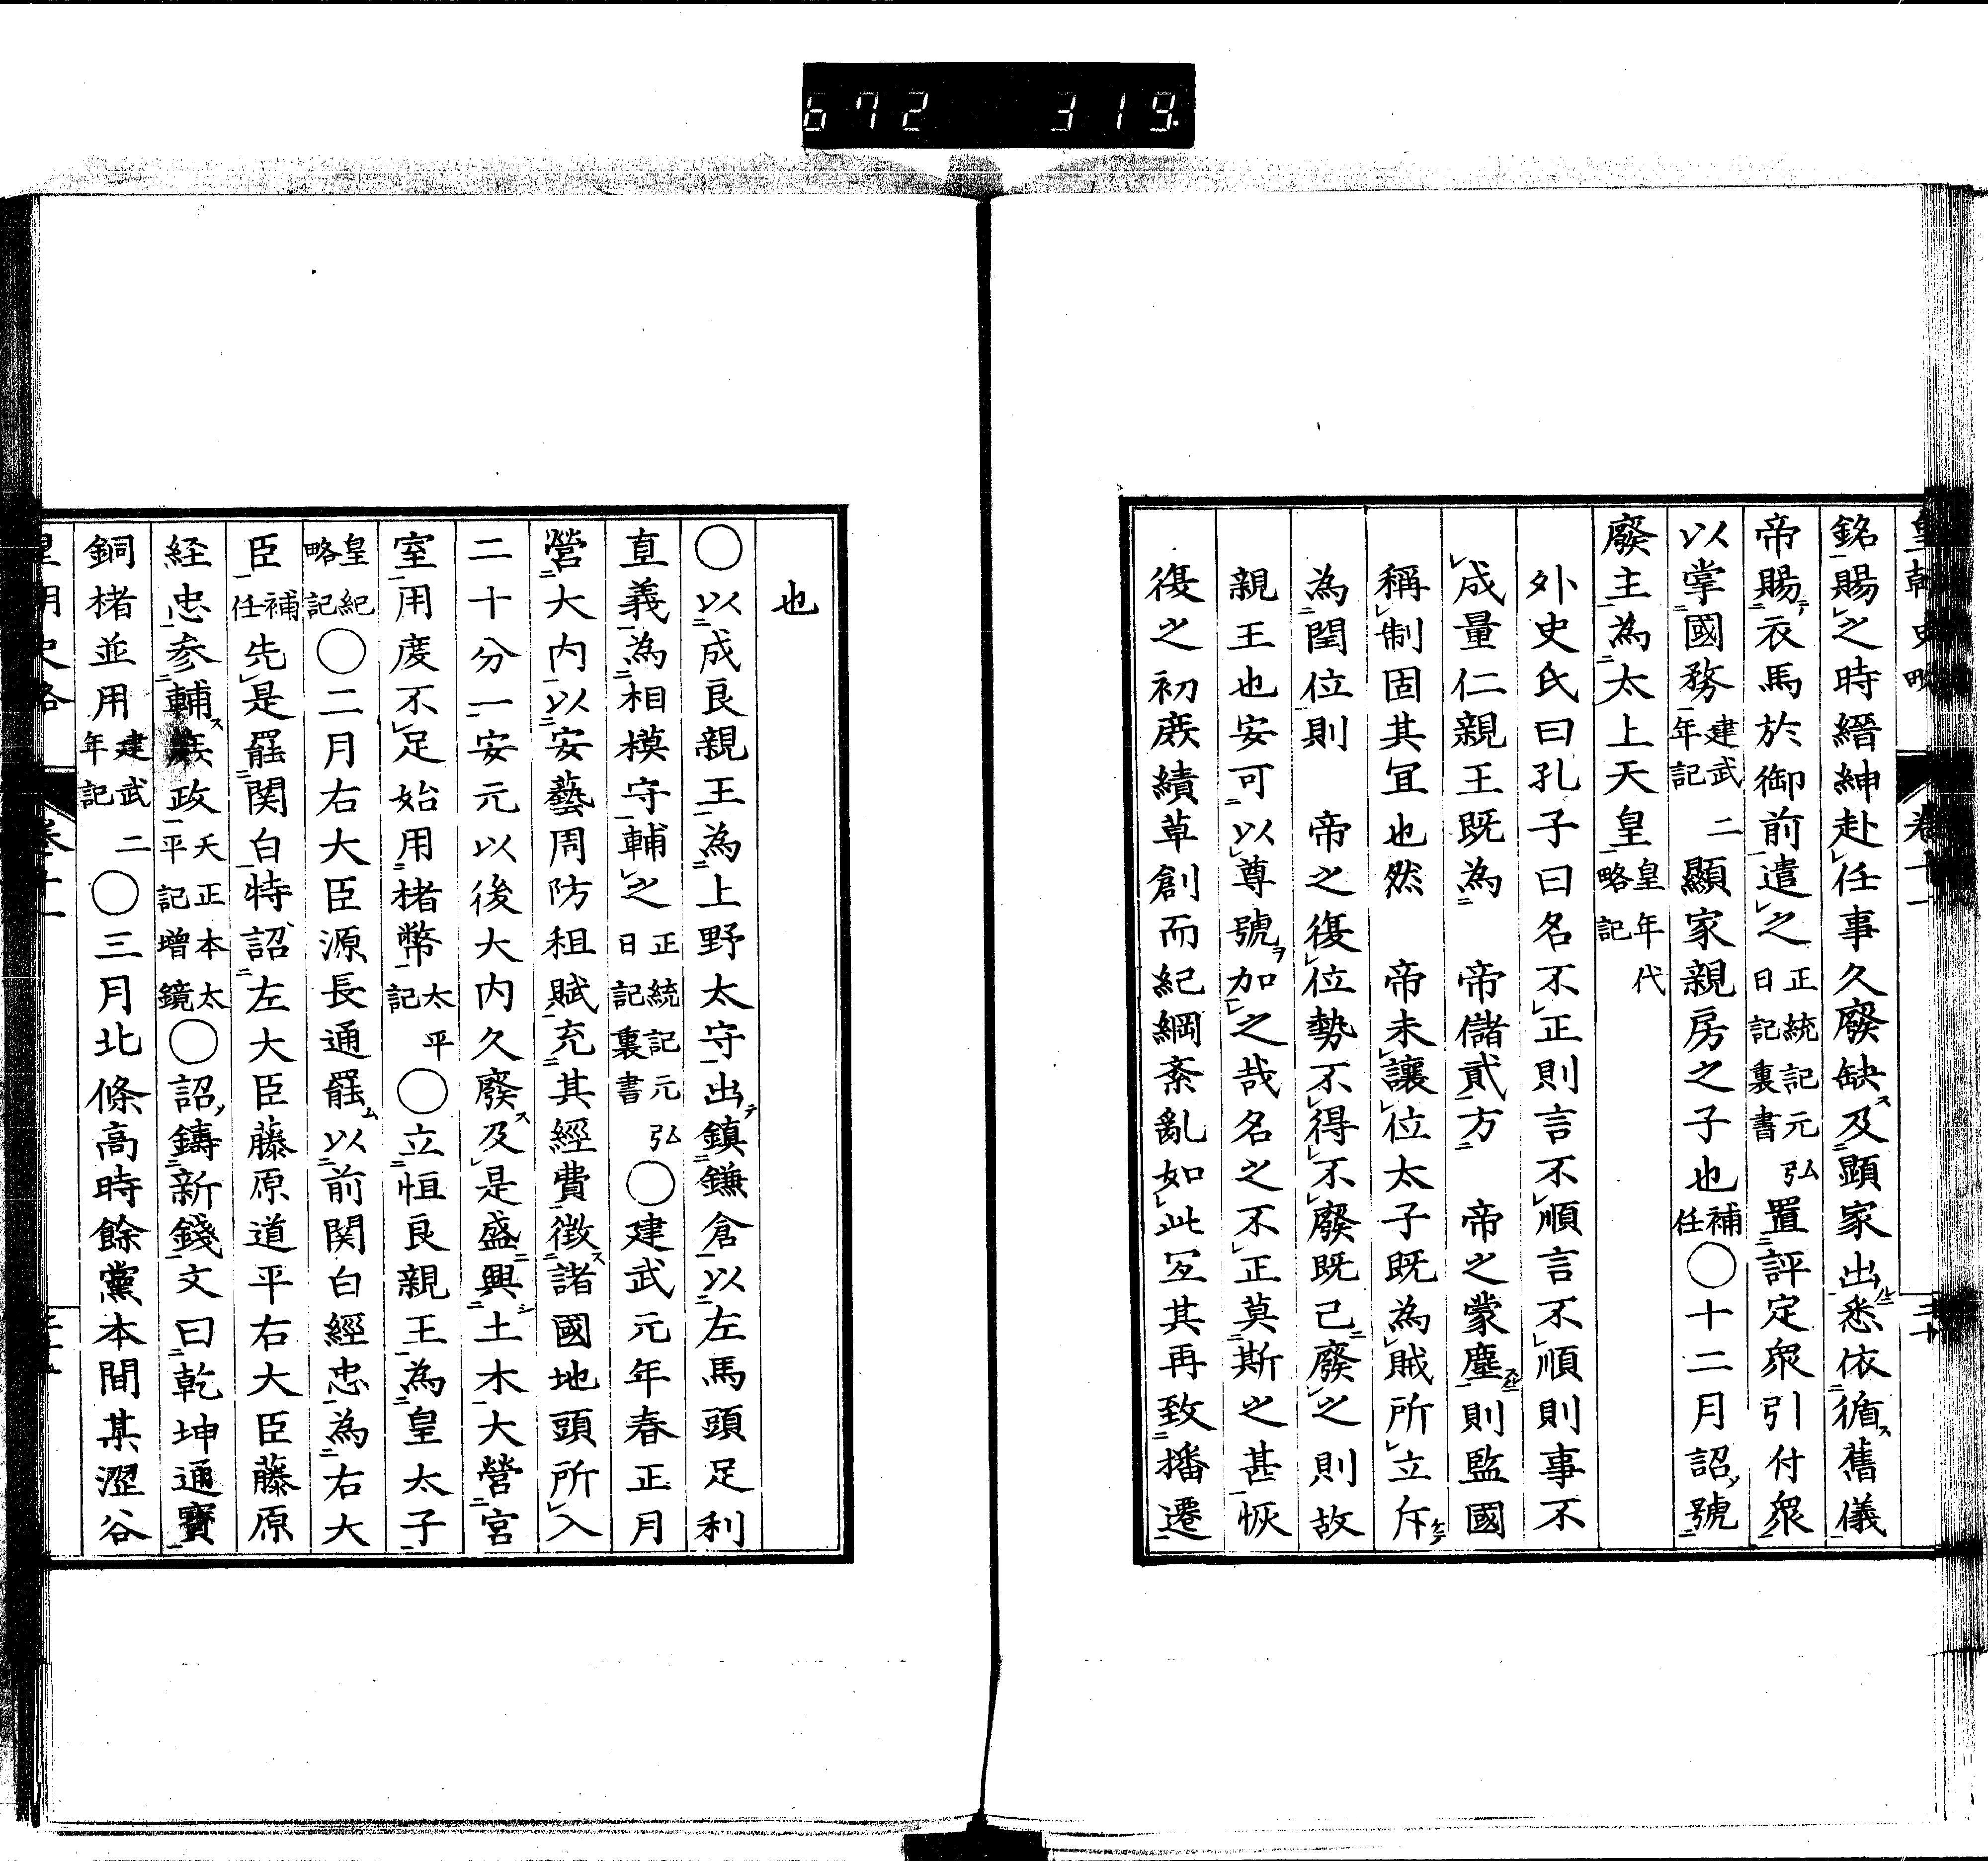 672 319
皇朝史略 卷十一 二十
銘賜之時縉紳赴任事久廢缺及顯家出悉依循舊儀
帝賜衣馬於御前遣之正統記元弘日記裏書置評定衆引付衆
以掌國務建武二年記顯家親房之子也補任〇十二月詔號
廢主為太上天皇皇年代略記
外史氏曰孔子曰名不正則言不順言不順則事不
成量仁親王既為 帝儲貳方 帝之蒙塵則監國
稱制固其冝也然 帝未讓位太子既為賊所立斥
為閏位則 帝之復位勢不得不廢既已廢之則故
親王也安可以尊號加之哉名之不正莫斯之甚恢
復之初庶績草創而紀綱紊亂如此冝其再致播遷
也
〇以成良親王為上野太守出鎮鎌倉以左馬頭足利
直義為相模守輔之正統記元弘日記裏書〇建武元年春正月
營大内以安藝周防租賦充其經費徴諸國地頭所入
二十分一安元以後大内久廢及是盛興土木大營宮
室用度不足始用楮幣太平記〇立恒良親王為皇太子
皇紀略記〇二月右大臣源長通罷以前関白經忠為右大
臣補任先是罷関白特詔左大臣藤原道平右大臣藤原
経忠参輔庶政天正本太平記增鏡〇詔鑄新錢文曰乾坤通寶
銅楮並用建武二年記〇三月北條高時餘黨本間某澀谷